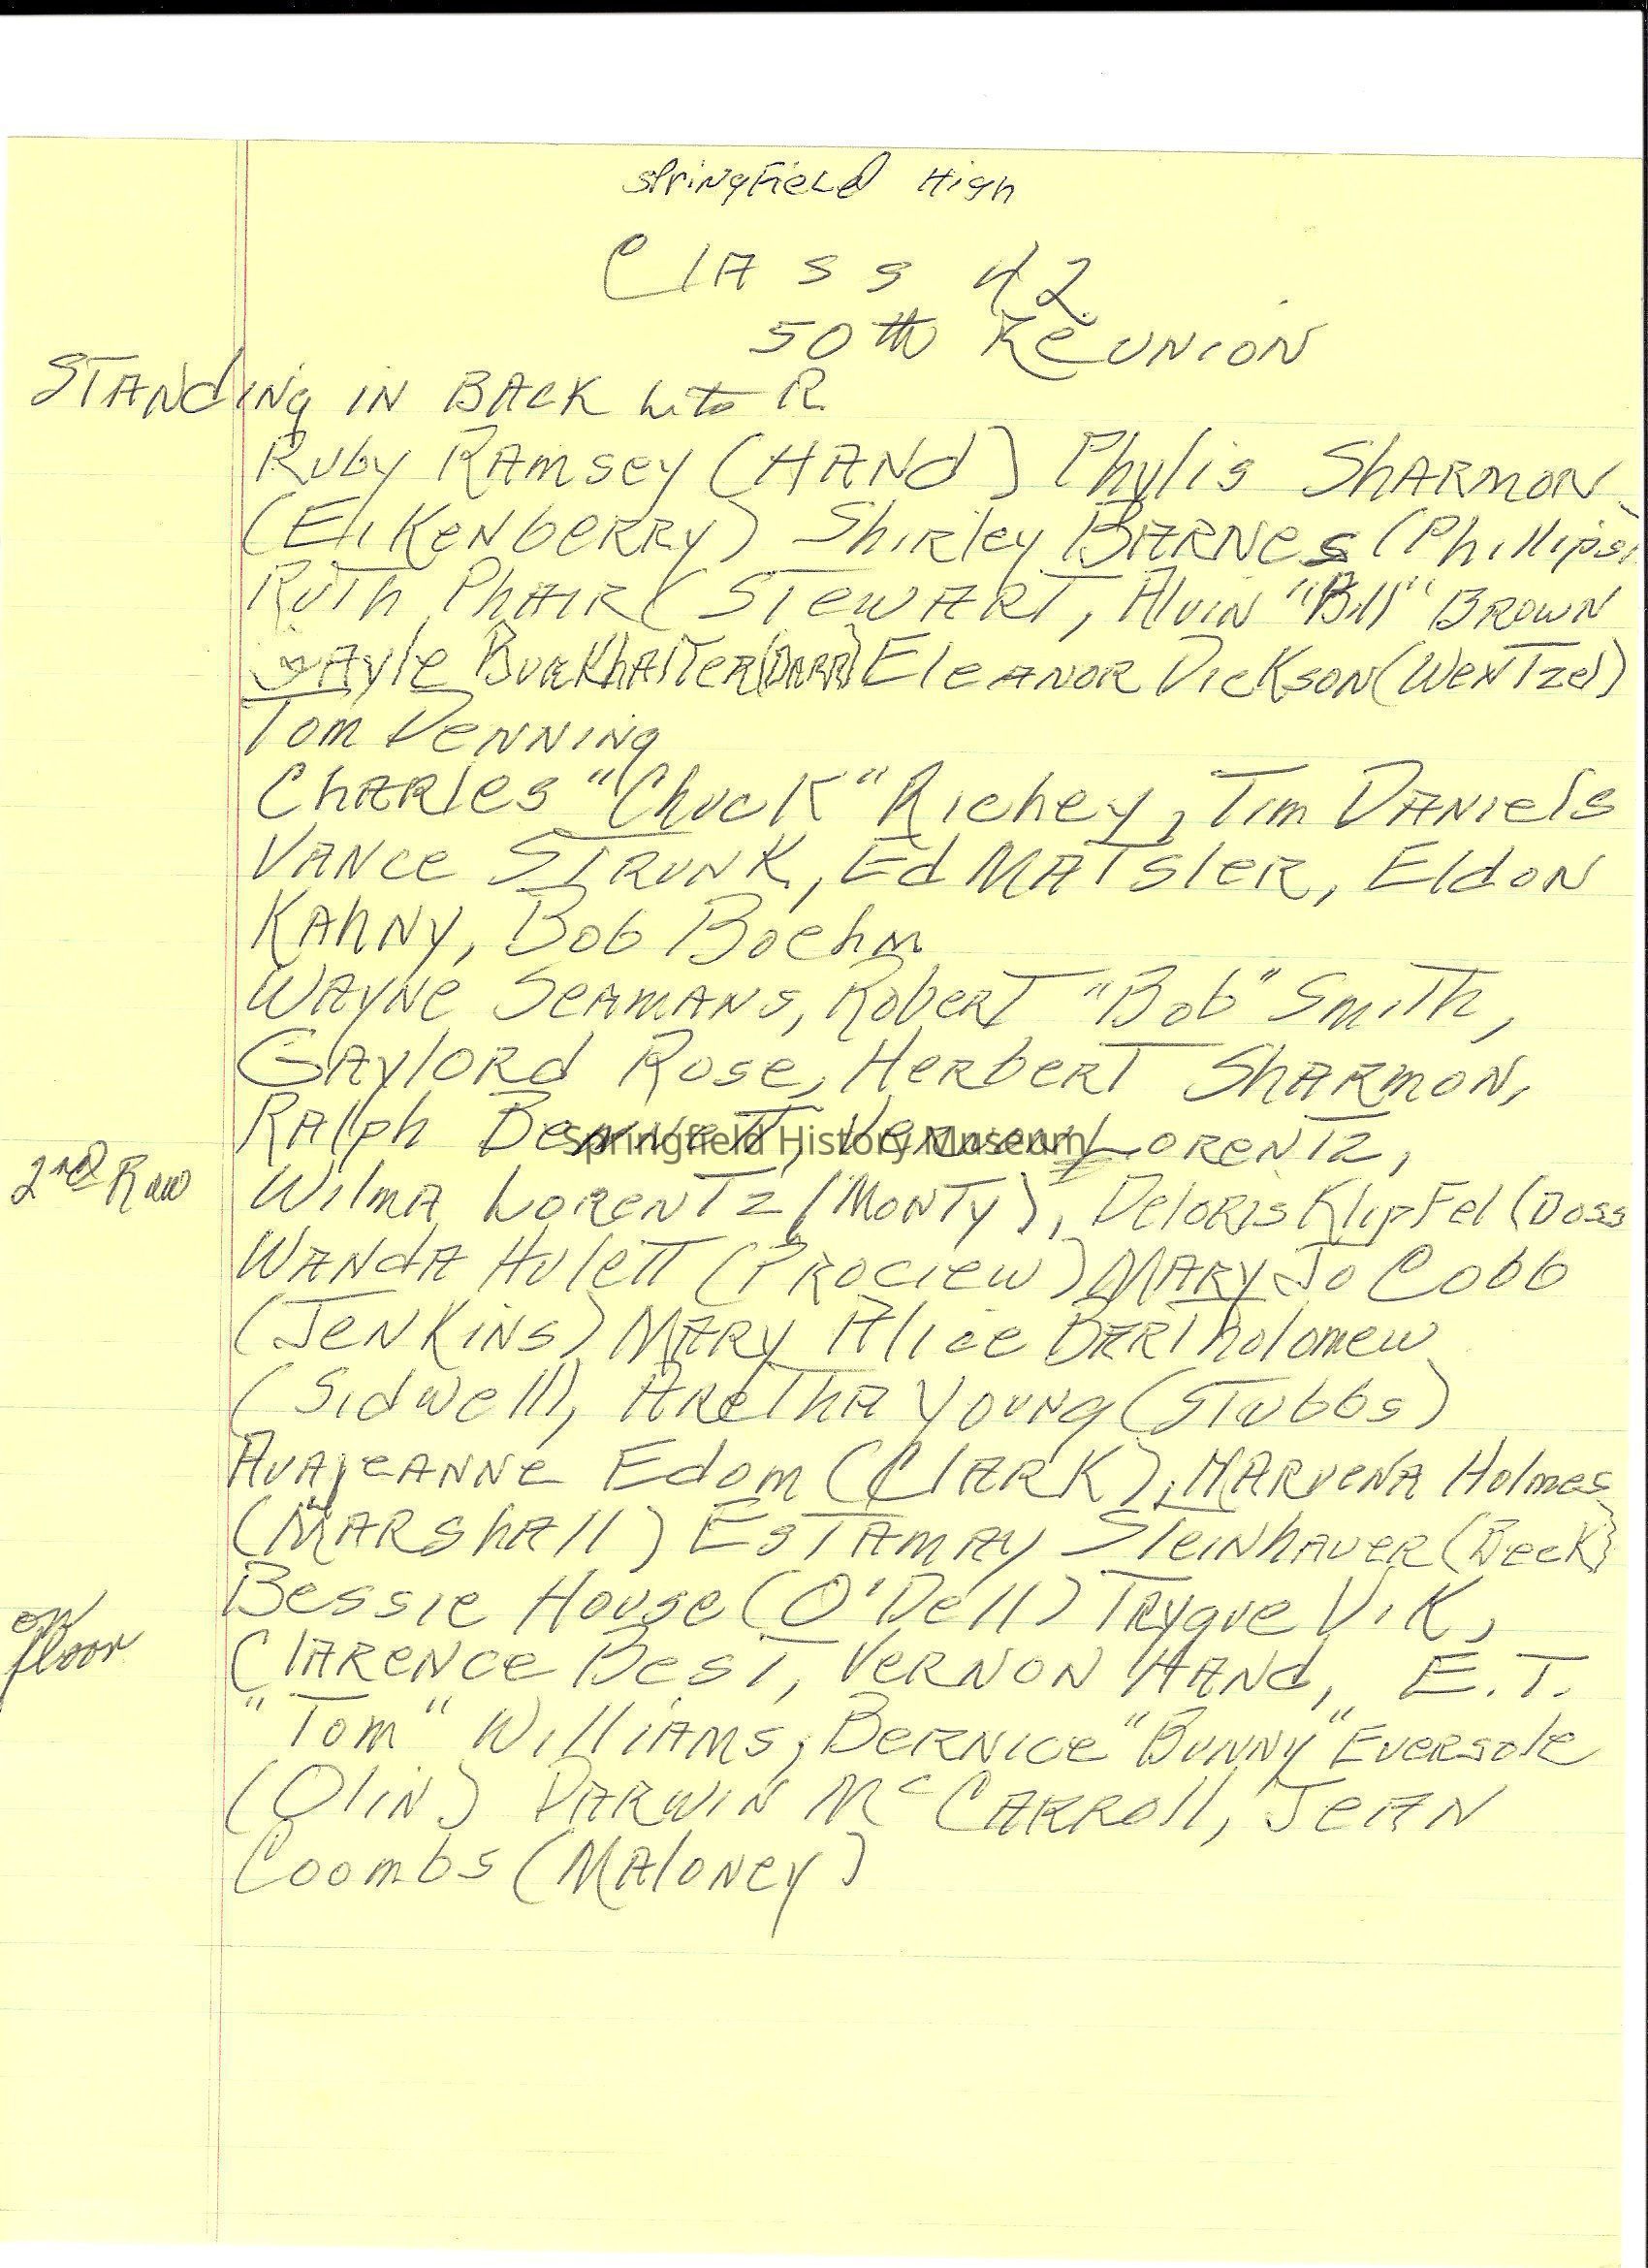 Springfield High
Class 42
50th Reunion
Standing in Back L to R
Ruby Ramsey (Hand) Phylis Sharmon
(Eikenberry) Shirley Barnes (Phillips)
Ruth Phair (Stewart, Alvin "Bill" Brown
Gayle Burkhalter (Darr) Eleanor Dickson (Wentzel)
Tom Denning
Charles "Chuck" Richey, Tim Daniels
Vance Strunk, Ed Matsler, Eldon
Kahny, Bob Boehm
Wayne Seamans, Robert "Bob" Smith,
Gaylord Rose, Herbert Sharmon,
Ralph Bennett, Vernon Lorentz,
Springfield History Museum
2nd Row Wilma Lorentz (Monty), Deloris Klipfel (Doss
Wanda Hulett (Prociew) Mary Jo Cobb
(Jenkins) Mary Alice Bartholomew
(Sidwell), Aretha Young (Stubbs)
Avajeanne Edom (Clark), Marvena Holmes
(Marshall) Estamay Steinhauer (Beck)
Bessie House (O'Dell) Trygve Vik,
on floor Clarence Best, Vernon Hand, E.T.
"Tom" Williams, Bernice "Bunny" Eversole
(Olin) Darwin McCarroll, Jean
Coombs (Maloney)